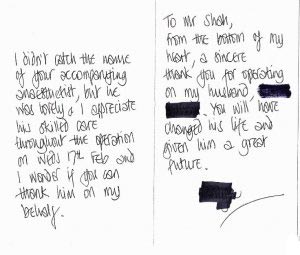 To Mr Shah,
from the bottom of my
heart, a sincere
thank you for operating
on my husband
. You will have
changed his life and
given him a great
future.
I didn't catch the name
of your accompanying
anaesthetist, but he
was lovely & I appreciate
his skilled care
throughout the operation
on Weds 7th Feb and
I wonder if you can
thank him on my
behalf.